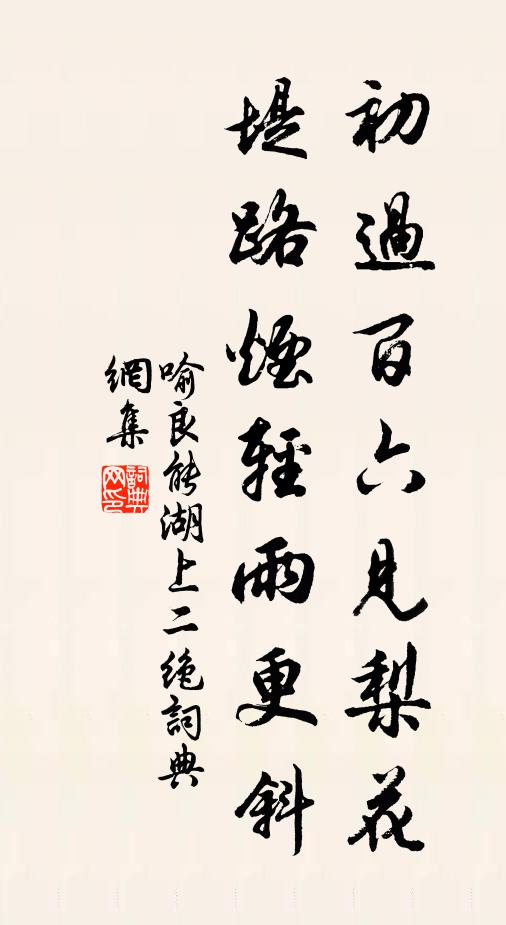 初過百六見梨花
堤路煙輕雨更斜
喻良能湖上二絶詞典
網集
詞典
网印